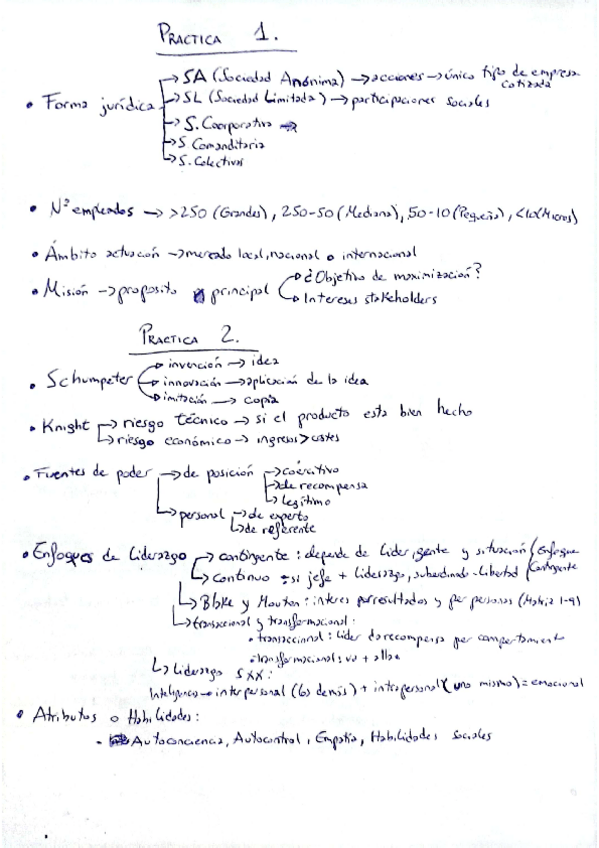 PRACTICA 1.
• Forma jurídica → SA (Sociedad Anónima) → acciones → único tipo de empresa cotizada
→ SL (Sociedad Limitada) → participaciones sociales
→ S. Cooperativa →
→ S Comanditaria
→ S. Colectivas
• Nº empleados → >250 (Grandes), 250-50 (Mediana), 50-10 (Pequeña), <10 (Micros)
• Ámbito actuación → mercado local, nacional o internacional
• Misión → proposito principal → ¿Objetivo de maximización?
→ Intereses stakeholders
PRACTICA 2.
→ invención → idea
• Schumpeter → innovación → aplicación de la idea
→ imitación → copia
• Knight → riesgo técnico → si el producto esta bien hecho
→ riesgo económico → ingresos > costes
• Fuentes de poder → de posición → coercitivo
→ de recompensa
→ legítimo
→ personal → de experto
→ de referente
• Enfoques de Liderazgo → contingente: depende de lider, gente y situación } Enfoque
→ continuo → si jefe + Liderazgo, subordinado - Libertad } Contingente
→ Blake y Mouton: interes por resultados y por personas (Matriz 1-9)
→ transaccional y transformacional:
• transaccional: lider da recompensa por comportamiento
• transformacional: va + allá
→ Liderazgo S XX:
Inteligencia → interpersonal (los demás) + intrapersonal (uno mismo) = emocional
• Atributos o Habilidades:
- Autoconciencia, Autocontrol, Empatía, Habilidades sociales